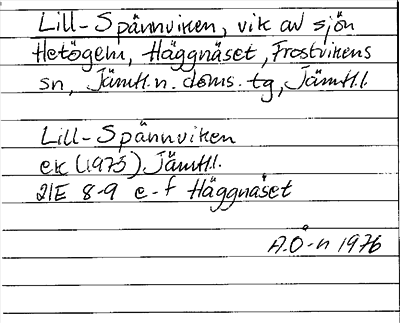 Lill-Spännviken, vik av sjön
Hetögeln, Häggnäset, Frostvikens
sn, Jämtl.n.doms.tg, Jämtl.l.
Lill-Spännviken
ek (1973) Jämtl.l.
21E 8-9 e-f Häggnäset
A.Ö-n 1976